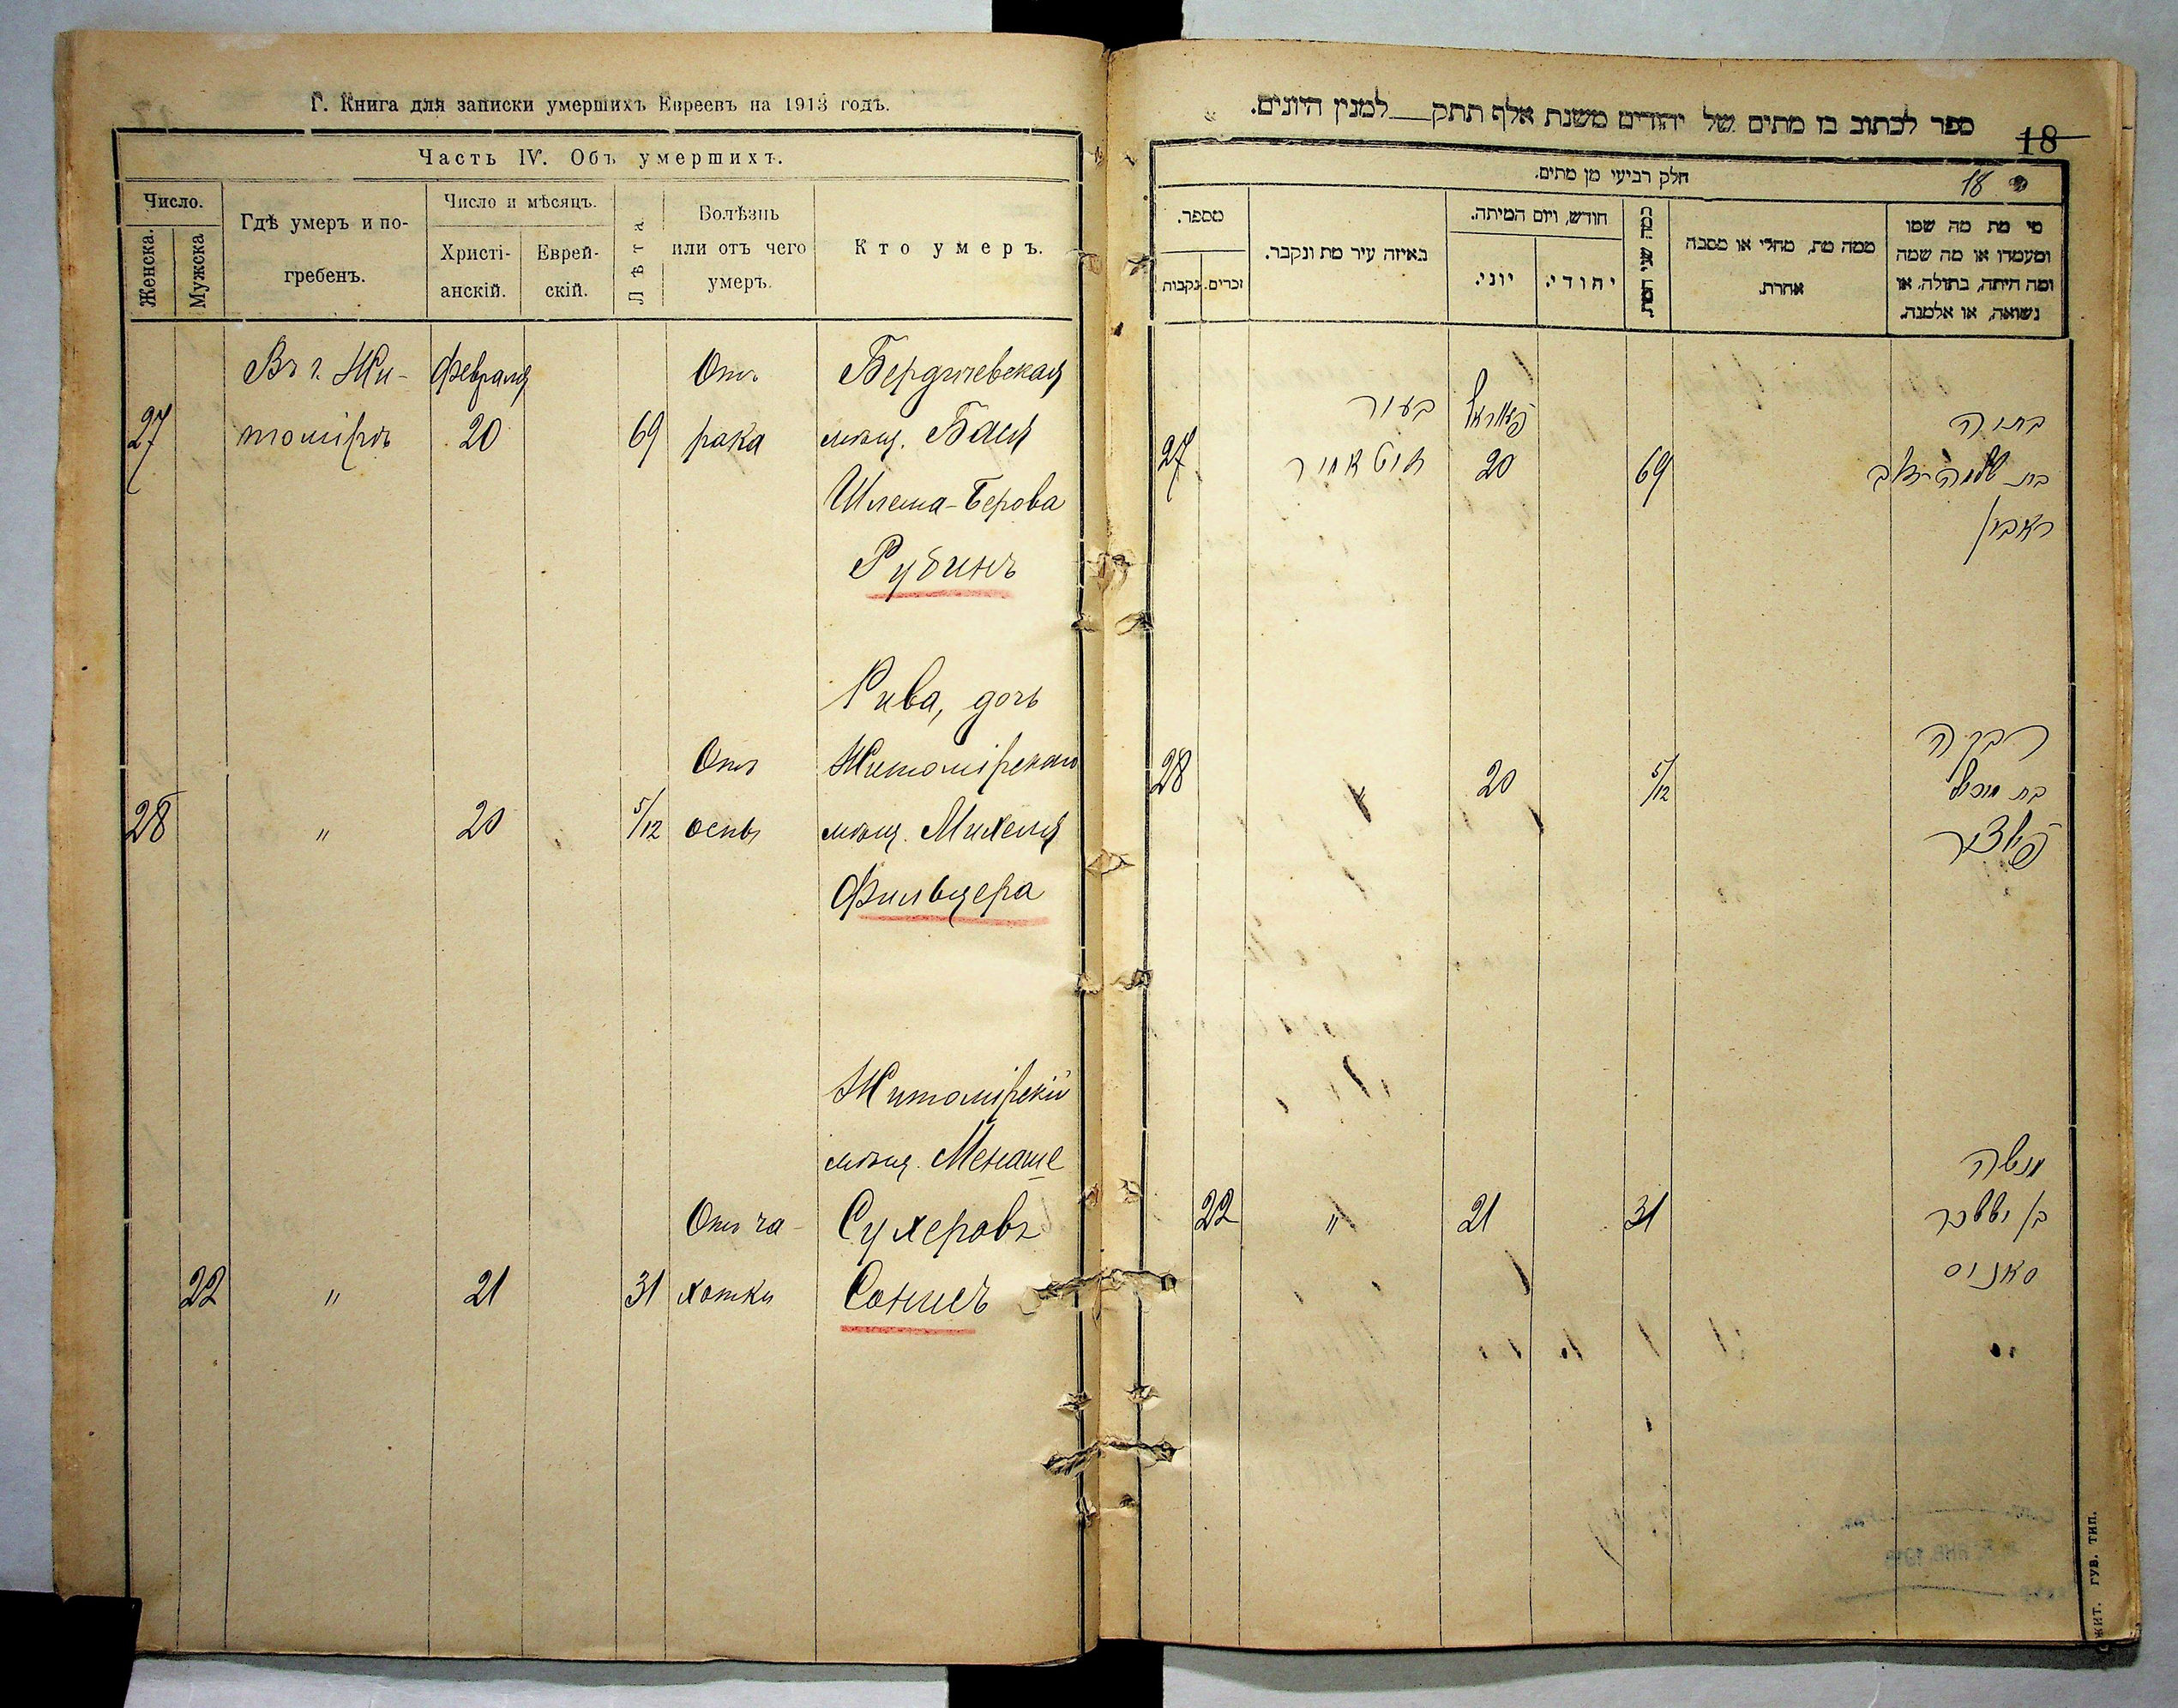 Г. Книга для записки умершихъ Евреевъ на 1913 годъ.
Часть IV. Объ умершихъ.
Число.
Женска.
Мужска
Гдѣ умеръ и по-
гребенъ.
Число и мѣсяцъ.
Христі-
анскій.
Еврей-
скій.
Лѣта
Болѣзнь
или отъ чего
умеръ.
Кто умеръ.
Въ г. Жи- Февраля Отъ Бердичевская
27 томірѣ 20 69 рака мѣщ. Бася
Шлема-Берова
Рубинъ
Рива, дочь
Отъ Житомірскаго
28 " 20 5/12 оспы мѣщ. Михеля
Фильцера
Житомірскій
мѣщ. Менаше
Отъ ча- Сухеровъ
22 " 21 31 хотки Сонисъ
ספר לכתוב בו מתים של יהודים משנת אלף תתק למנין היונים.
18
18
חלק רביעי מן מתים.
מספר.
זכרים.
נקבות
באיזה עיר מת ונקבר.
חודש, ויום המיתה.
יוני.
יהודי.
כמה שני המת
ממה מת, מחלי או מסבה
אחרת.
מי מת מה שמו
ומעמדו או מה שמה
ומה היתה, בתולה, או
נשואה, או אלמנה.
בעיר פאוראל
בתיה
27 זיטאמיר 20 69 בת
ראבין
רבקה
28 20 5/12 בת מיכל
פילצער
מנשה
22 " 21 31 בן יששכר
סאניס
ЖИТ. ГУВ. ТИП.